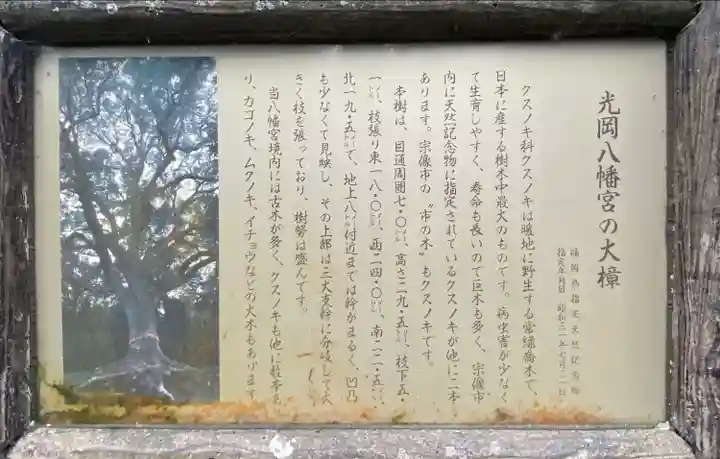 光岡八幡宮の大樟
福岡県指定天然記念物
指定年月日 昭和三一年七月二一日
クスノキ科クスノキは暖地に野生する常緑喬木で、
日本に産する樹木中最大のものです。病虫害が少なく
て生育しやすく、寿命も長いので巨木も多く、宗像市
内に天然記念物に指定されているクスノキが他に二本
あります。宗像市の“市の木”もクスノキです。
本樹は、目通周囲七・〇メートル、高さ二九・五メートル、枝下五・
一メートル、枝張り東一八・〇メートル、西二四・〇メートル、南二二・五メートル、
北一九・五メートルで、地上八メートル付近までは幹がまるく、凹凸
も少なくて見映し、その上部は三大支幹に分岐して大
きく枝を張っており、樹勢は盛んです。
当八幡宮境内には古木が多く、クスノキも他に数本あ
り、カゴノキ、ムクノキ、イチョウなどの大木もあります